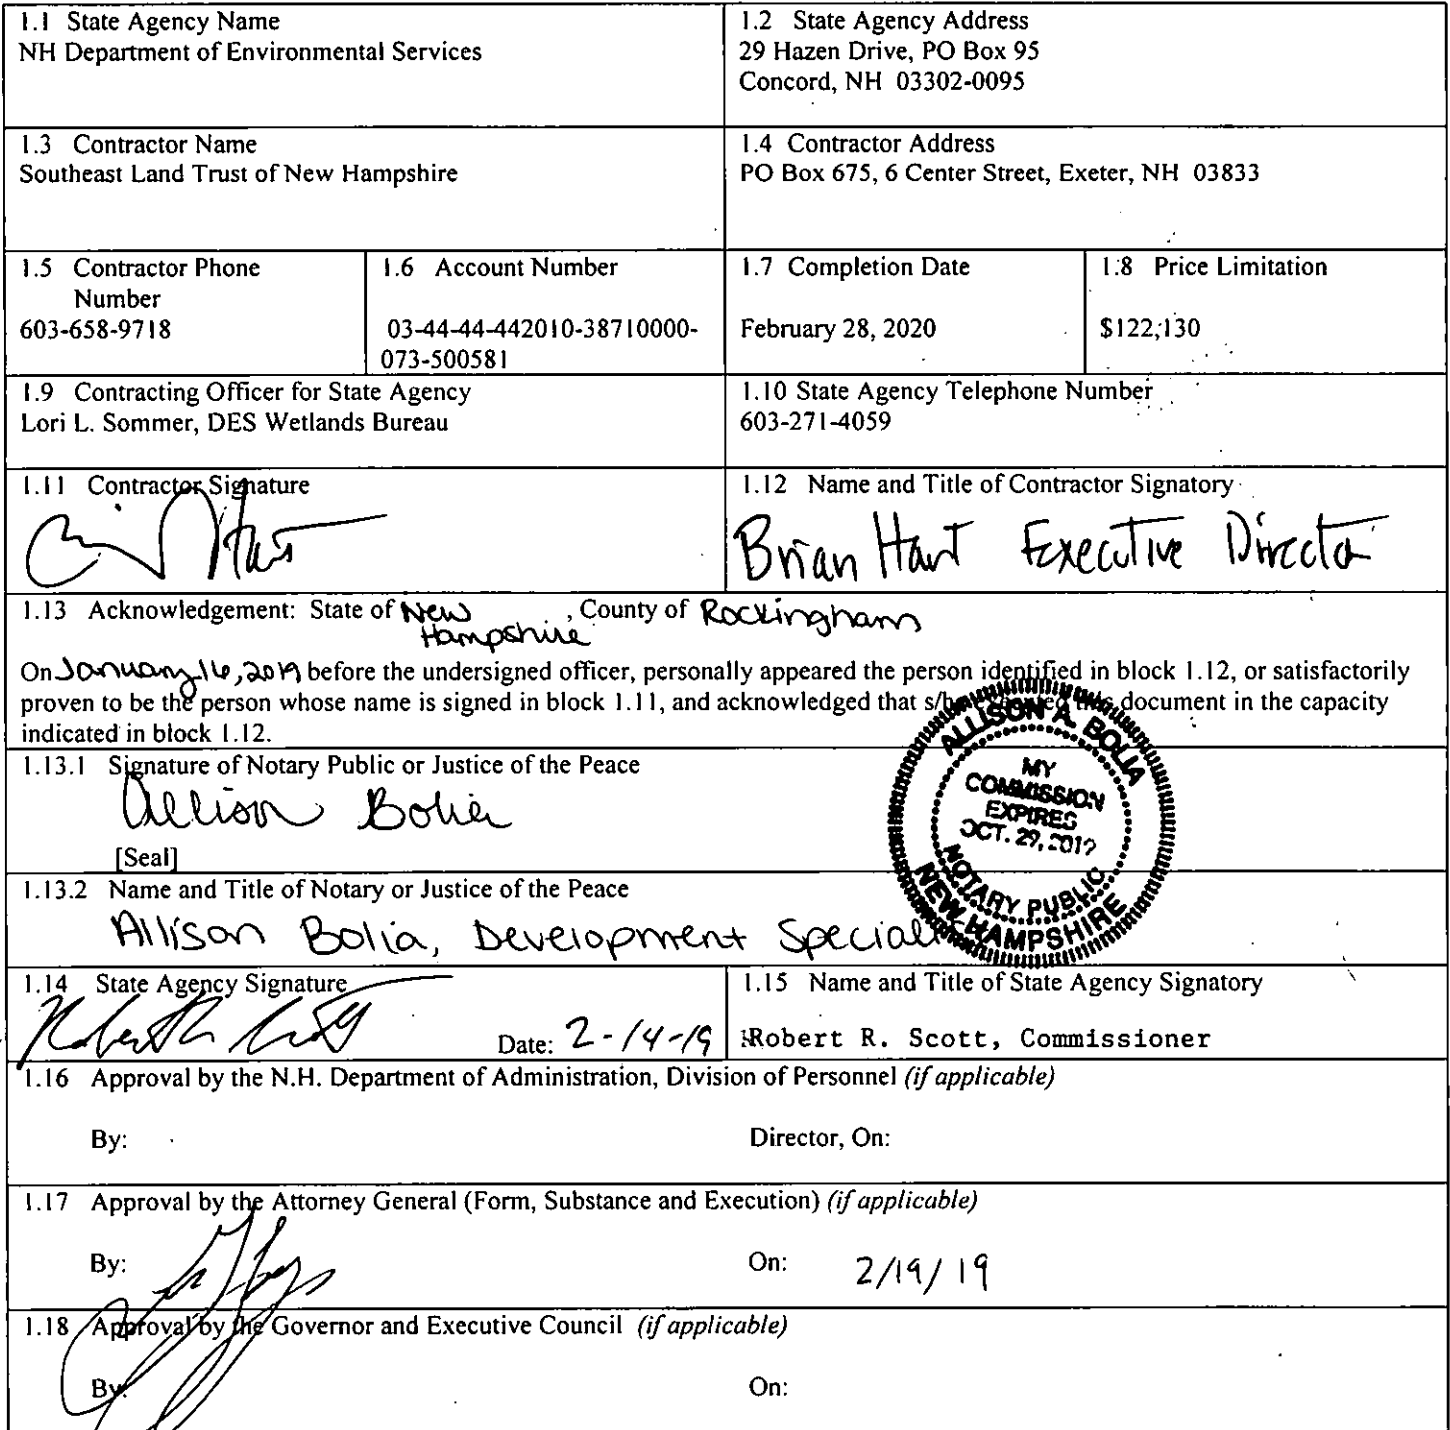 1.1 State Agency Name
NH Department of Environmental Services
1.2 State Agency Address
29 Hazen Drive, PO Box 95
Concord, NH 03302-0095
1.3 Contractor Name
Southeast Land Trust of New Hampshire
1.4 Contractor Address
PO Box 675, 6 Center Street, Exeter, NH 03833
1.5 Contractor Phone
Number
603-658-9718
1.6 Account Number
03-44-44-442010-38710000-
073-500581
1.7 Completion Date
February 28, 2020
1.8 Price Limitation
$122,130
1.9 Contracting Officer for State Agency
Lori L. Sommer, DES Wetlands Bureau
1.10 State Agency Telephone Number
603-271-4059
1.11 Contractor Signature
1.12 Name and Title of Contractor Signatory
Brian Hart Executive Director
1.13 Acknowledgement: State of New Hampshire, County of Rockingham
On January 16, 2019 before the undersigned officer, personally appeared the person identified in block 1.12, or satisfactorily
proven to be the person whose name is signed in block 1.11, and acknowledged that document in the capacity
indicated in block 1.12.
1.13.1 Signature of Notary Public or Justice of the Peace
Allison Bolia
[Seal]
ALLISON A. BOLIA
MY
COMMISSION
EXPIRES
OCT. 29,
NOTARY PUBLIC
NEW HAMPSHIRE
1.13.2 Name and Title of Notary or Justice of the Peace
Allison Bolia, Development Special
1.14 State Agency Signature
Date: 2-14-19
1.15 Name and Title of State Agency Signatory
Robert R. Scott, Commissioner
1.16 Approval by the N.H. Department of Administration, Division of Personnel (if applicable)
By:
Director, On:
1.17 Approval by the Attorney General (Form, Substance and Execution) (if applicable)
By:
On: 2/19/19
1.18 Approval by the Governor and Executive Council (if applicable)
By:
On: